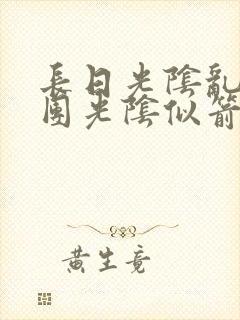 長日光陰亂
團光陰似箭
黃生竟